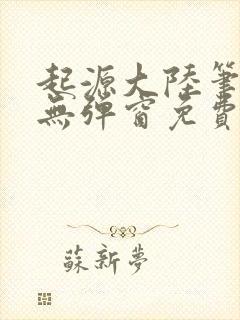 起源大陸筆
無彈窗免費
蘇新夢